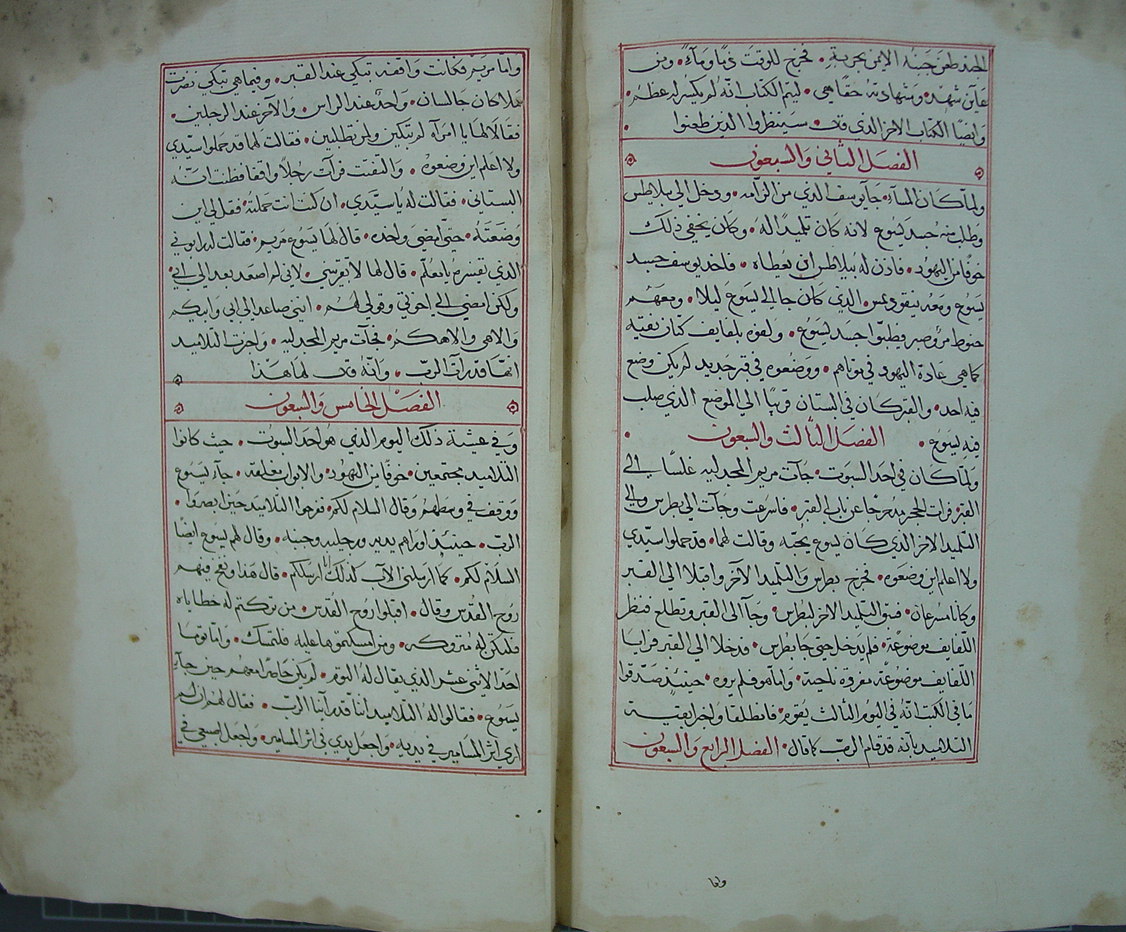 الجند طعن جنبه الايمن بحربة • فخرج للوقت دمًا ومآءً • ومن
عاين شهد • وشهادته حقًا هي • ليتم الكتاب انه لم يكسر له عظم •
وايضًا الكتاب الاخر الذي قال • سينظروا الذين طعنوا •
الفصل الثاني والسبعون
ولما كان المسآء جآ يوسف الذي من الرامه • ودخل الى بيلاطس
وطلب منه جسد يسوع لانه كان تلميدًا له • وكان يخفي ذلك
خوفًا من اليهود • فاذن له بيلاطس ان يعطاه • فاخد يوسف جسد
يسوع ومعه نيقوديمس • الذي كان جا الي يسوع ليلا • ومعهم
حنوط مر وصبر فطيبوا جسد يسوع • ولفوه بلفايف كتان نقيه
كما هي عادة اليهود في موتاهم • ووضعوه في قبر جديد لم يكن وضع
فيه احد • والقبر كان في البستان قريبًا الي الموضع الذي صلب
فيه ليسوع • الفصل الثالث والسبعون •
ولما كان في احد السبوت • جآت مريم المجدليه غلسًا الي
القبر فرات الحجر مدحرجًا عن باب القبر • فاسرعت وجآت الي بطرس والي
التلميد الاخر الدي كان يسوع يحبه وقالت لهما • قد حملوا سيدي
ولا اعلم اين وضعوه • فخرج بطرس والتلميد الآخر واقبلا الي القبر
وكانا يسرعان • فسبق التلميد الاخر لبطرس • وجآ الى القبر وتطلع فنظر
اللفايف موضوعة • فلم يدخل حتي جا بطرس • فدخلا الي القبر فرايا
اللفايف موضوعة مفروقه ناحية • واما هو فلم يروه • حينيد صدقوا
ما في الكتب انه في اليوم الثالث يقوم • فانطلقا واخبرا بقية
التلاميد بانه قد قام الرب كما قال • الفصل الرابع والسبعون
واما
واما مريم فكانت واقفه تبكي عند القبر • وفيما هي تبكي نضرت
ملاكان جالسان • واحد عند الراس • والآخر عند الرجلين •
فقالا لها يا امرآه لم تبكين ولمن تطلبين • فقالت لهما قد حملوا سيدي
ولا اعلم اين وضعوه • والتفتت فرآت رجلًا واقفا فظنت انه
البستاني • فقالت له يا سيدي • ان كنت انت حملته • فقل لي اين
وضعته • حتي امضي واخده • قال لها يسوع مريم • فقالت له رابوني
الذي تفسره يا معلم • قال لها لا تقربيني • لاني لم اصعد بعد الي ابي
ولكن امضي الي اخوتي وقولي لهم • انني صاعد الي ابي وابيكم
والاهي والاهكم • فجآت مريم المجدليه • واخبرت التلاميد
انها قد رآت الرب • وانه قال لها هذا
الفصل الخامس والسبعون
وفي عشية ذلك اليوم الذي هو احد السبوت • حيث كانوا
التلاميد مجتمعين • خوفا من اليهود • والابواب مغلقه • جآ يسوع
ووقف في وسطهم وقال السلام لكم • ففرحوا التلاميد حين ابصروا
الرب • حينيد اوراهم يديه ورجليه وجنبه • وقال لهم يسوع ايضا
السلام لكم • كما ارسلني الآب كذلك انا ارسلكم • قال هذا ونفخ فيهم
روح القدس وقال • اقبلوا روح القدس • من تركتم له خطاياه
فلتكن له متروكه • ومن امسكتموها عليه فلتمسك • واما توما
احد الاثني عشر الذي يقال له التوم • لم يكن حاضرا معهم حين جآ
يسوع • فقالوا له التلاميد اننا قد راينا الرب • فقال لهم ان لم
اري اثر المسامير في يديه • واجعل يدي في اثر المسامير • واجعل اصبعي في